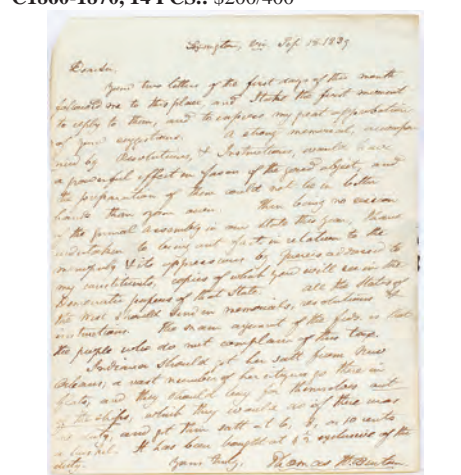 C1860-1870, 14 PCS.: $200/400
Lexington, Sep. 18. 1839
Dear Sir,
Your two letters of the first days of this month
followed me to this place, and I take the first moment
to reply to them, and to express my great approbation
of your suggestions. A strong memorial, accompa
nied by Resolutions, & Instructions, would have
a powerful effect in favor of the good object, and
the preparation of them could not be in better
hands than your own. There being no session
of the general assembly in our state this year, I have
undertaken to bring out facts in relation to the
monopoly & its oppressions by queries addressed to
my constituents, copies of which you will see in the
Democratic papers of that State. All the States of
the West should send in memorials, resolutions &
instructions. The main argument of the is that
the people who do not complain of this tax.
Indiana should get her salt from New
Orleans; a vast number of her citizens go there in
boats, and they should buy for themselves out
of the ships, which they would do if there was
no duty, and get their salt at 6, 8, or 10 cents
a bushel. It has been bought at exclusive of the
duty. Yours truly, Thomas H. Benton